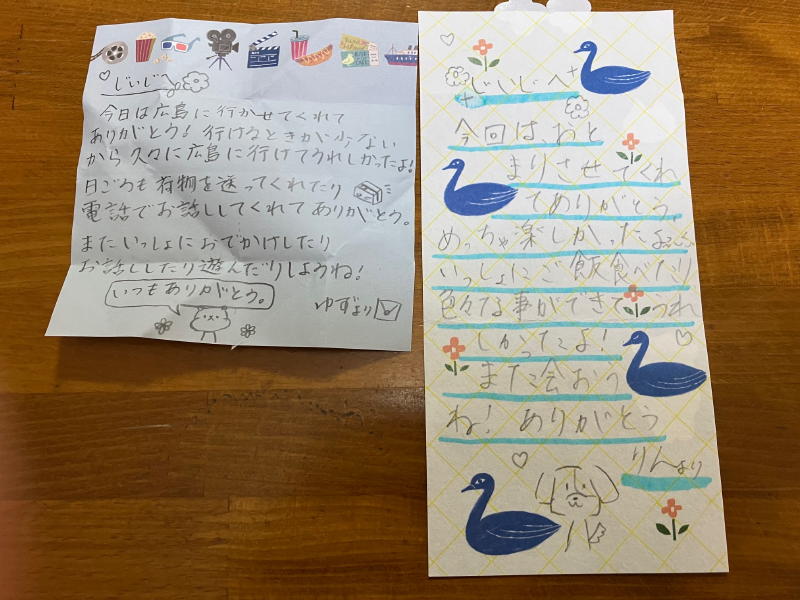 じいじへ
今日は広島に行かせてくれて
ありがとう！行けるときが少ない
から久々に広島に行けてうれしかったよ！
日ごろも荷物を送ってくれたり
電話でお話ししてくれてありがとう。
またいっしょにおでかけしたり
お話ししたり遊んだりしようね！
いつもありがとう。
ゆずより
じいじへ
今回はおと
まりさせてくれ
てありがとう。
めっちゃ楽しかったよ
いっしょにご飯食べたり
色々な事ができてうれ
しかったよ！
また会おう
ね！ありがとう
りんより